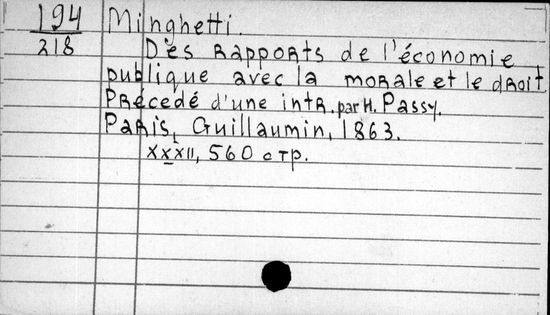 194 Minghetti.
218 Des Rapports de l'économie
publique avec la morale et le droit.
Précedé d'une intr. par H. Passy.
Paris, Guillaumin, 1863.
XXXII, 560 стр.